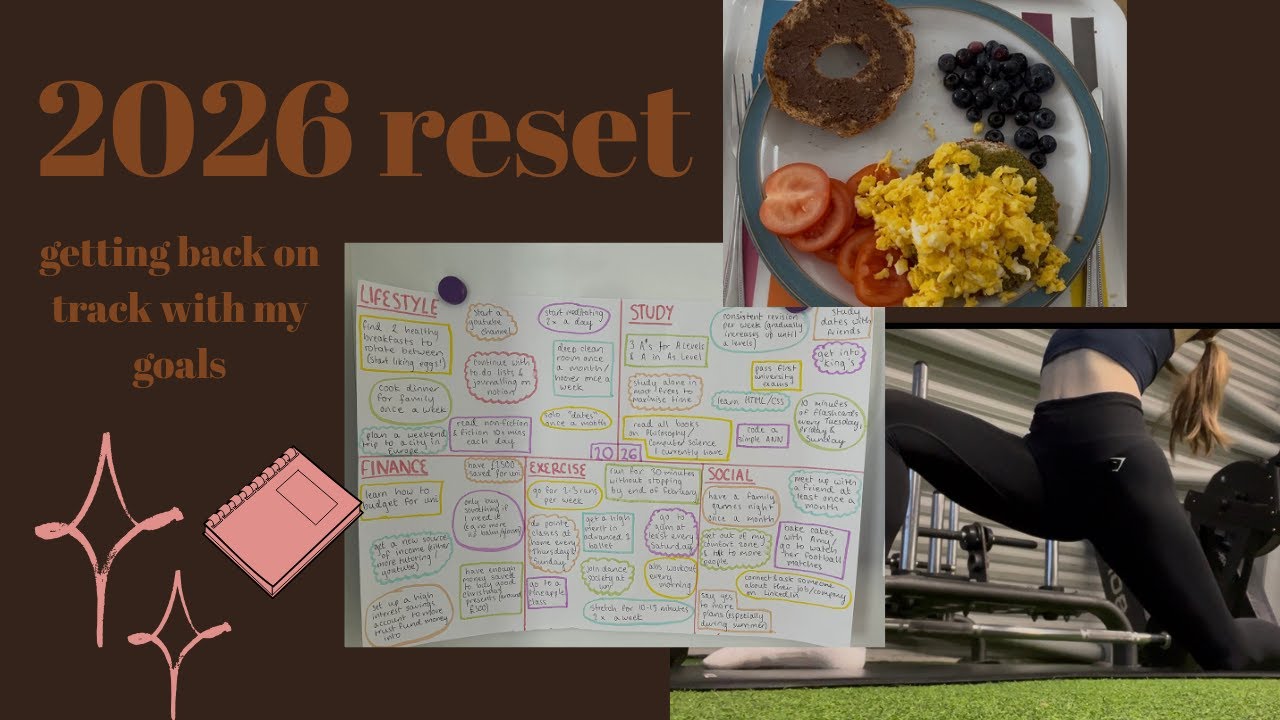 2026 reset
getting back on
track with my
goals
LIFESTYLE
find 2 healthy
breakfasts to
rotate between
(start liking eggs!)
start a
youtube
channel
start meditating
2x a day
continue with
to do lists &
journalling on
notion
deep clean
room once
a month/
hoover once a
week
cook dinner
for family
once a week
read non-fiction
& fiction 10+ mins
each day
solo "dates"
once a month
plan a weekend
trip to a city in
Europe
2026
STUDY
consistent revision
per week (gradually
increases up until
a levels)
study
dates with
friends
3 A*s for A Levels
& A in As Level
get into
king's
pass first
university
exams
study alone in
most frees to
maximise time
learn HTML/CSS
10 minutes
of flashcards
every Tuesday,
Friday &
Sunday
read all books
on Philosophy/
Computer Science
I currently have
code a
simple ANN
FINANCE
have £1500
saved for uni
learn how to
budget for uni
only buy
something if
I need it
get a new source
of income (either
more tutoring /
youtube)
have enough
money saved
christmas
presents (around
£300)
set up a high
interest savings
account to move
trust fund money
into
EXERCISE
run for 30 minutes
without stopping
by end of February
go for 1-3 runs
per week
do pointe
classes at
home every
Thursday &
Sunday
get a high
merit in
advanced 1
ballet
go to
gym at
least every
Saturday
join dance
society at
uni
abs workout
every
morning
go to a
pineapple
class
stretch for 10-15 minutes
2x a week
SOCIAL
meet up with
a friend at
least once
a month
have a family
games night
once a month
get out of my
comfort zone &
talk to more
people
bake cakes
with Amy/
go to watch
her football
matches
connect & ask someone
about their job/company
on LinkedIn
say yes
to more
plans (especially
during summer)